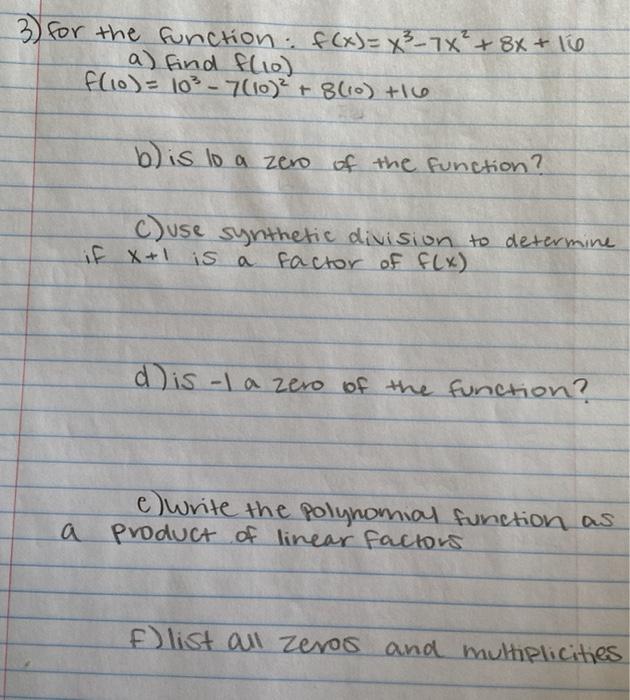 3) for the function: f(x) = x³ - 7x² + 8x + 16
a) find f(10)
f(10) = 10³ - 7(10)² + 8(10) + 16
b) is 10 a zero of the function?
c) use synthetic division to determine
if x+1 is a factor of f(x)
d) is -1 a zero of the function?
e) write the polynomial function as
a product of linear factors
f) list all zeros and multiplicities